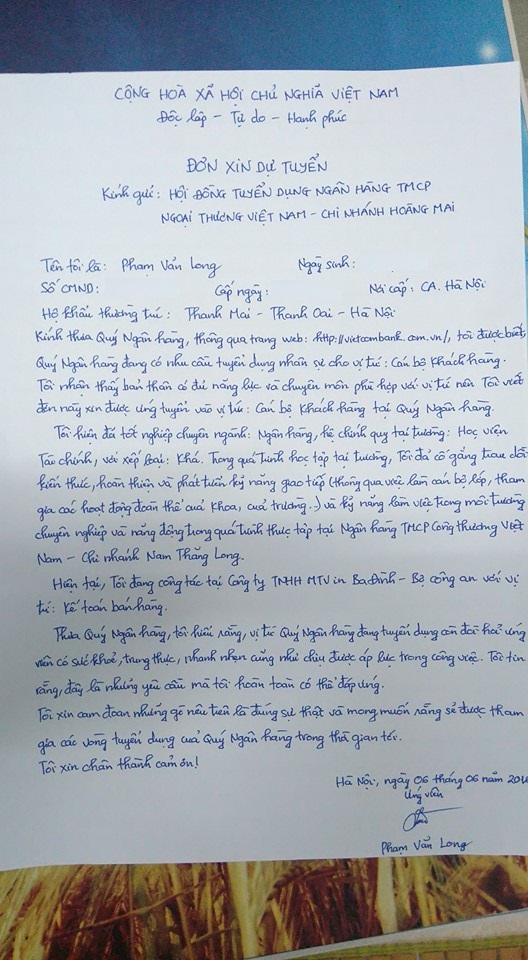 CỘNG HOÀ XÃ HỘI CHỦ NGHĨA VIỆT NAM
Độc lập - Tự do - Hạnh phúc
ĐƠN XIN DỰ TUYỂN
Kính gửi: HỘI ĐỒNG TUYỂN DỤNG NGÂN HÀNG TMCP
NGOẠI THƯƠNG VIỆT NAM - CHI NHÁNH HOÀNG MAI
Tên tôi là: Phạm Văn Long Ngày sinh:
Số CMND: Cấp ngày: Nơi cấp: CA. Hà Nội
Hộ khẩu thường trú: Thanh Mai - Thanh Oai - Hà Nội
Kính thưa Quý Ngân hàng, thông qua trang web: http://vietcombank.com.vn/, tôi được biết,
Quý Ngân hàng đang có nhu cầu tuyển dụng nhân sự cho vị trí: Cán bộ Khách hàng.
Tôi nhận thấy bản thân có đủ năng lực và chuyên môn phù hợp với vị trí nên Tôi viết
đơn này xin được ứng tuyển vào vị trí: Cán bộ Khách hàng tại Quý Ngân hàng.
Tôi hiện đã tốt nghiệp chuyên ngành: Ngân hàng, hệ chính quy tại trường: Học viện
Tài chính, với xếp loại: Khá. Trong quá trình học tập tại trường, Tôi đã cố gắng trau dồi
kiến thức, hoàn thiện và phát triển kỹ năng giao tiếp (thông qua việc làm cán bộ lớp, tham
gia các hoạt động đoàn thể của Khoa, của trường..) và kỹ năng làm việc trong môi trường
chuyên nghiệp và năng động trong quá trình thực tập tại Ngân hàng TMCP Công thương Việt
Nam - Chi nhánh Nam Thăng Long.
Hiện tại, Tôi đang công tác tại Công ty TNHH MTV in Ba Đình - Bộ công an với vị
trí: Kế toán bán hàng.
Thưa Quý Ngân hàng, tôi hiểu rằng, vị trí Quý Ngân hàng đang tuyển dụng cần đòi hỏi ứng
viên có sức khoẻ, trung thực, nhanh nhẹn cũng như chịu được áp lực trong công việc. Tôi tin
rằng, đây là những yêu cầu mà tôi hoàn toàn có thể đáp ứng.
Tôi xin cam đoan những gì nêu trên là đúng sự thật và mong muốn rằng sẽ được tham
gia các vòng tuyển dụng của Quý Ngân hàng trong thời gian tới.
Tôi xin chân thành cảm ơn!
Hà Nội, ngày 06 tháng 06 năm
Ứng viên
Phạm Văn Long